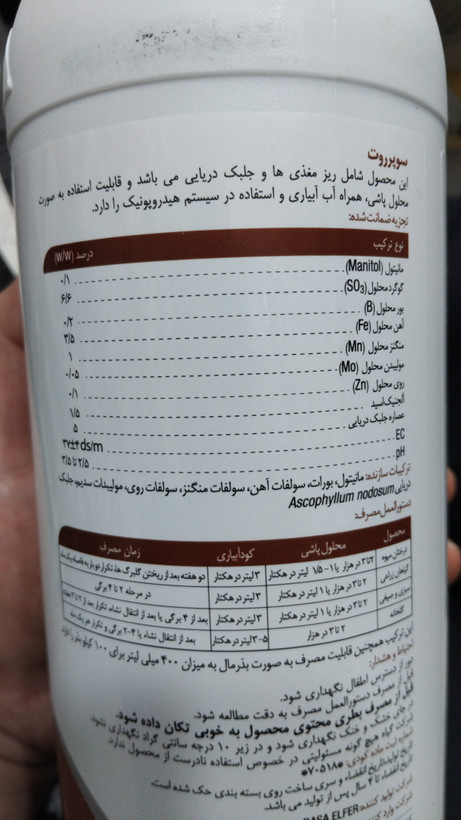 سوپرروت
این محصول شامل ریز مغذی ها و جلبک دریایی می باشد و قابلیت استفاده به صورت
محلول پاشی، همراه آب آبیاری و استفاده در سیستم هیدروپونیک را دارد.
تجزیه ضمانت شده:
نوع ترکیب درصد (W/W)
مانیتول (Manitol) ۰/۱
گوگرد محلول (SO3) ۶/۶
بور محلول (B) ۰/۲
آهن محلول (Fe) ۳/۵
منگنز محلول (Mn) ۱
مولیبدن محلول (Mo) ۰/۰۵
روی محلول (Zn) ۰/۱
آلجنیک اسید ۱/۵
عصاره جلبک دریایی ۵
EC ۳۷±۴ds/m
pH ۲/۵ تا ۳/۵
ترکیبات سازنده: مانیتول، بورات، سولفات آهن، سولفات منگنز، سولفات روی، مولیبدات سدیم، جلبک
دریایی Ascophyllum nodosum
دستورالعمل مصرف:
محصول محلول پاشی کودآبیاری زمان مصرف
درختان میوه ۲ تا ۳ در هزار یا ۱-۱/۵ لیتر در هکتار ۳ لیتر در هکتار دو هفته بعد از ریختن گلبرگ ها، تکرار دو بار به فاصله یک ماه
گیاهان زراعی ۲ تا ۳ در هزار یا ۱ لیتر در هکتار ۳ لیتر در هکتار در مرحله ۲ تا ۴ برگی
سبزی و صیفی ۲ تا ۳ در هزار یا ۱ لیتر در هکتار ۳ لیتر در هکتار بعد از ۴ برگی یا بعد از انتقال نشاء، تکرار بعد از ۲ تا ۳ هفته
گلخانه ۲ تا ۳ در هزار ۳-۵ لیتر در هکتار بعد از انتقال نشاء یا ۴-۲ برگی و تکرار هر یک ماه
این ترکیب همچنین قابلیت مصرف به صورت بذرمال به میزان ۴۰۰ میلی لیتر برای ۱۰۰ کیلو بذر را دارد.
احتیاط و هشدار:
دور از دسترس اطفال نگهداری شود.
قبل از مصرف دستورالعمل مصرف به دقت مطالعه شود.
قبل از مصرف بطری محتوی محصول به خوبی تکان داده شود.
در جای خشک و خنک نگهداری شود و در زیر ۱۰ درجه سانتی گراد نگهداری نشود
شرکت گیاه هیچ گونه مسئولیتی در خصوص استفاده نادرست از محصول ندارد.
شماره ثبت ماده کودی: *۷۰۵۱۸*
تاریخ تولید، تاریخ انقضاء و سری ساخت روی بسته بندی حک شده است.
تاریخ انقضاء تا ۴ سال پس از تولید می باشد.
شرکت تولید کننده: DASA ELFER
شرکت وارد کننده: